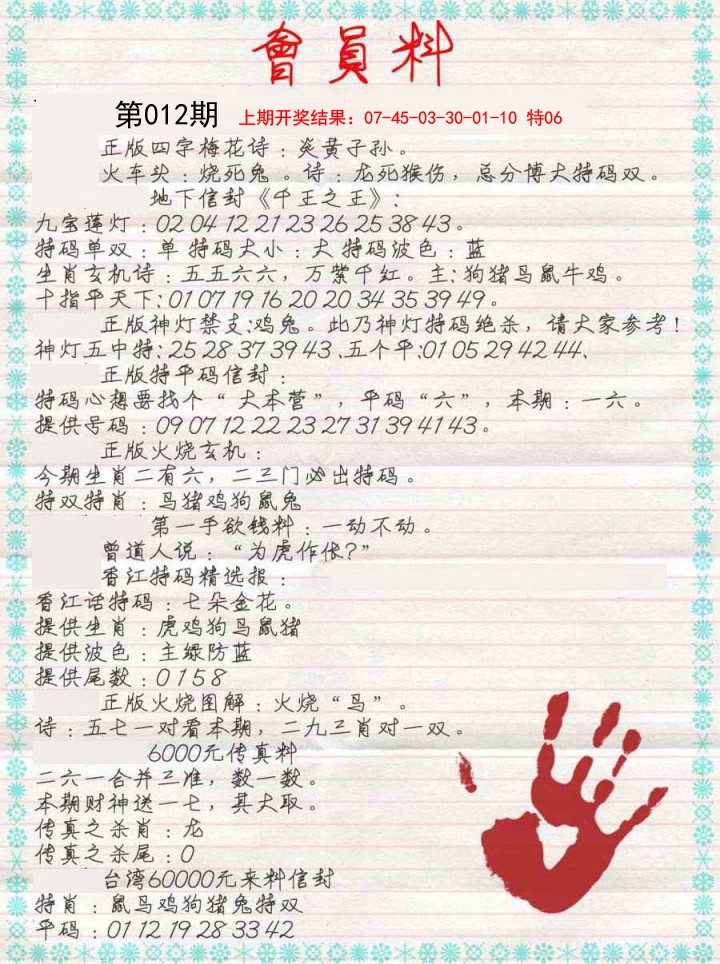 會員料
第012期 上期开奖结果：07-45-03-30-01-10 特06
正版四字梅花诗：炎黄子孙。
火车头：烧死兔。诗：龙死猴伤，总分博大特码双。
地下信封《千王之王》：
九宝莲灯：02 04 12 21 23 26 25 38 43。
特码单双：单 特码大小：大 特码波色：蓝
生肖玄机诗：五五六六，万紫千红。主：狗猪鸟鼠牛鸡。
十指平天下：01 07 19 16 20 20 34 35 39 49。
正版神灯禁支：鸡兔。此乃神灯特码绝杀，请大家参考！
神灯五中特：25 28 37 39 43、五个平：01 05 29 42 44、
正版特平码信封：
特码心想要找个“大本营”，平码“六”，本期：一六。
提供号码：09 07 12 22 23 27 31 39 41 43。
正版火烧玄机：
今期生肖二有六，二三门必出特码。
特双特肖：鸟猪鸡狗鼠兔
第一手欲钱料：一动不动。
曾道人说：“为虎作伥？”
香江特码精选报：
香江话特码：七朵金花。
提供生肖：虎鸡狗鸟鼠猪
提供波色：主绿防蓝
提供尾数：0 1 5 8
正版火烧图解：火烧“鸟”。
诗：五七一对看本期，二九三肖对一双。
6000元传真料
二六一合并三准，数一数。
本期财神送一七，其大取。
传真之杀肖：龙
传真之杀尾：0
台湾60000元来料信封
特肖：鼠鸟鸡狗猪兔特双
平码：01 12 19 28 33 42